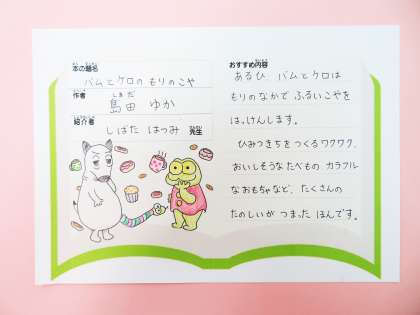 本の題名
バムとケロの もりのこや
作者
島田 ゆか
しまだ
紹介者
しばた はつみ 先生
おすすめ内容
あるひ、バムとケロは
もりのなかで ふるいこやを
はっけんします。
ひみつきちを つくるワクワク、
おいしそうな たべもの、カラフル
なおもちゃなど、たくさんの
たのしいが つまった ほんです。